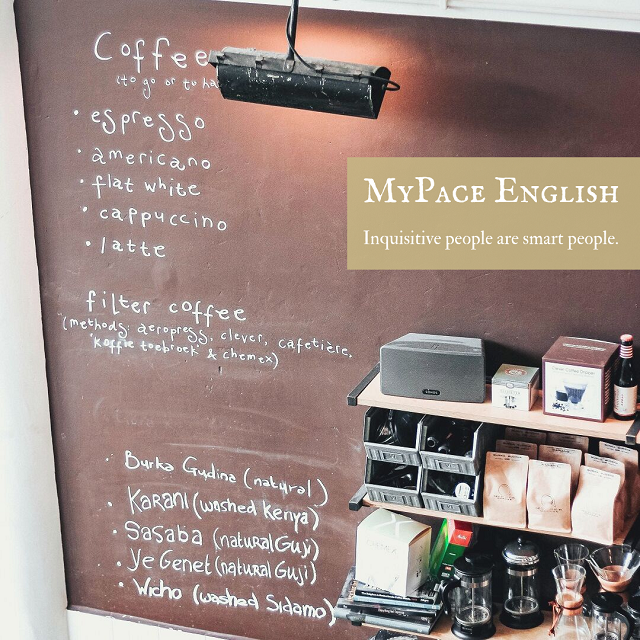 Coffee
(to go or to
espresso
americano
flat white
cappuccino
latte
filter coffee
(methods: aeropress, clever, cafetière,
koffie toebroek & chemex)
Burka Gudina (natural)
Karani (washed Kenya)
Sasaba (natural Guji)
Ye Genet (natural Guji)
Wicho (washed Sidamo)
MyPace English
Inquisitive people are smart people.